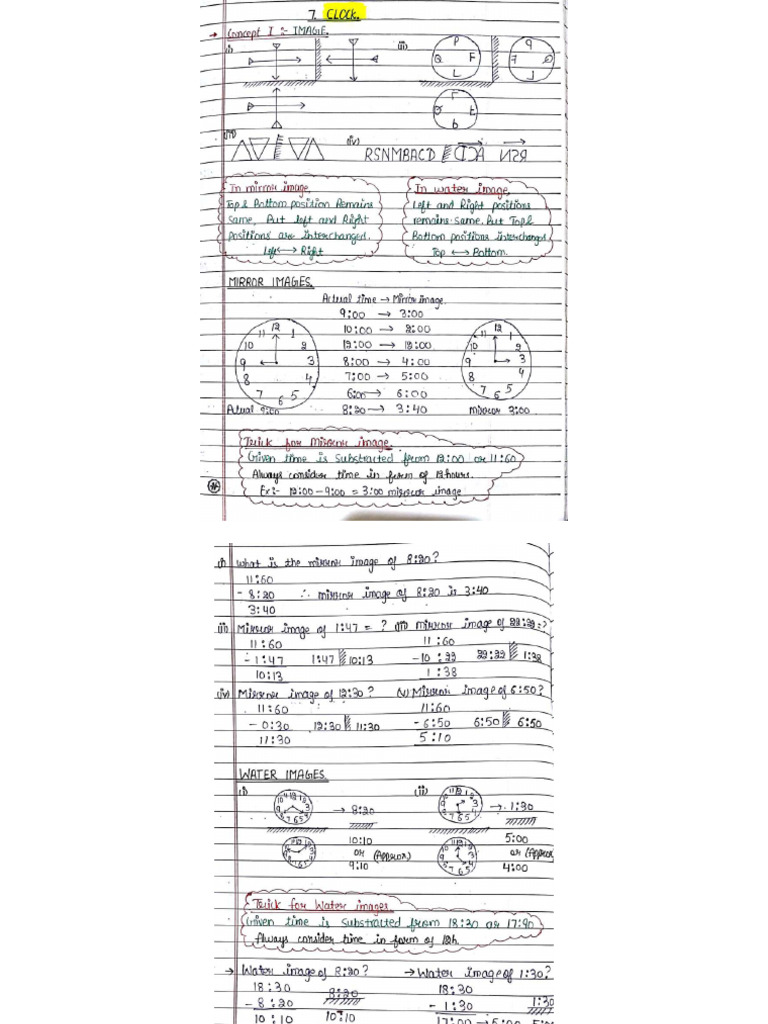 7. CLOCK.
→ Concept I :- IMAGE.
(i) (ii)
P
Q F
L
(iii) (iv) RSNMBACD
In mirror image,
Top & Bottom position Remains
Same, But left and Right
positions are interchanged.
Left ↔ Right
In water image,
Left and Right positions
remains same. But Top &
Bottom positions interchanged
Top ↔ Bottom.
MIRROR IMAGES.
Actual time → Mirror image.
9:00 → 3:00
10:00 → 2:00
12:00 → 12:00
8:00 → 4:00
7:00 → 5:00
6:00 → 6:00
8:20 → 3:40
12 1 2 3 4 5 6 7 8 9 10 11
Actual 9:00
12 1 2 3 4 5 6 7 8 9 10 11
mirror 3:00
Trick for Mirror image.
Given time is substracted from 12:00 or 11:60
Always consider time in form of 12 hours.
Ex:- 12:00 - 9:00 = 3:00 mirror image
(i) what is the mirror image of 8:20?
11:60
- 8:20 ∴ mirror image of 8:20 is 3:40
3:40
(ii) Mirror image of 1:47 = ? (iii) mirror image of 22:22 = ?
11:60 11:60
- 1:47 1:47 10:13 - 10:22 22:22 1:38
10:13 1:38
(iv) Mirror image of 12:30? (v) Mirror image of 6:50?
11:60 11:60
- 0:30 12:30 11:30 - 6:50 6:50 6:50
11:30 5:10
WATER IMAGES.
(i) → 8:20 (ii) → 1:30
10:10 5:00
or (Approx) or (Approx
9:10 4:00
Trick for Water images
Given time is substracted from 18:30 or 17:90
Always consider time in form of 12h.
→ Water image of 8:20? → Water image of 1:30?
18:30 8:20 18:30
- 8:20 - 1:30 1:30
10:10 10:10 17:00 → 5:00 5:0